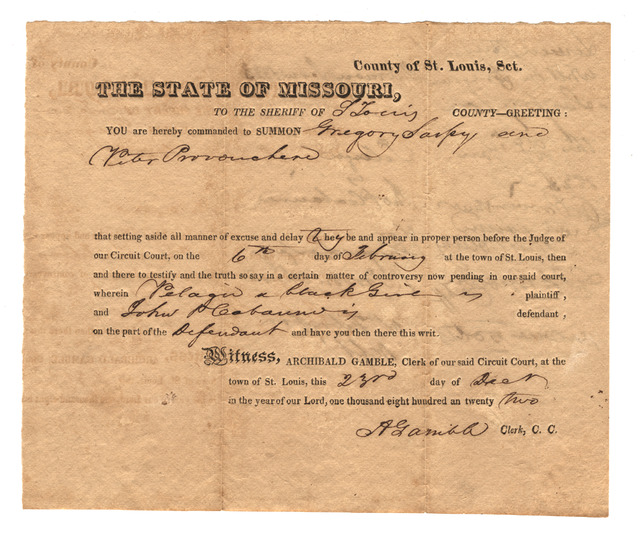 County of St. Louis, Sct.
THE STATE OF MISSOURI,
TO THE SHERIFF OF St Louis COUNTY—GREETING:
YOU are hereby commanded to SUMMON Gregory Sarpy and
Peter Provenchere
that setting aside all manner of excuse and delay they be and appear in proper person before the Judge of
our Circuit Court, on the 6th day of February at the town of St. Louis, then
and there to testify and the truth so say in a certain matter of controversy now pending in our said court,
wherein Pelagie a black Girl is plaintiff,
and John P Cabanne is defendant,
on the part of the Defendant and have you then there this writ.
Witness, ARCHIBALD GAMBLE, Clerk of our said Circuit Court, at the
town of St. Louis, this 23rd day of Decr
in the year of our Lord, one thousand eight hundred an twenty two
A Gamble Clerk, C. C.